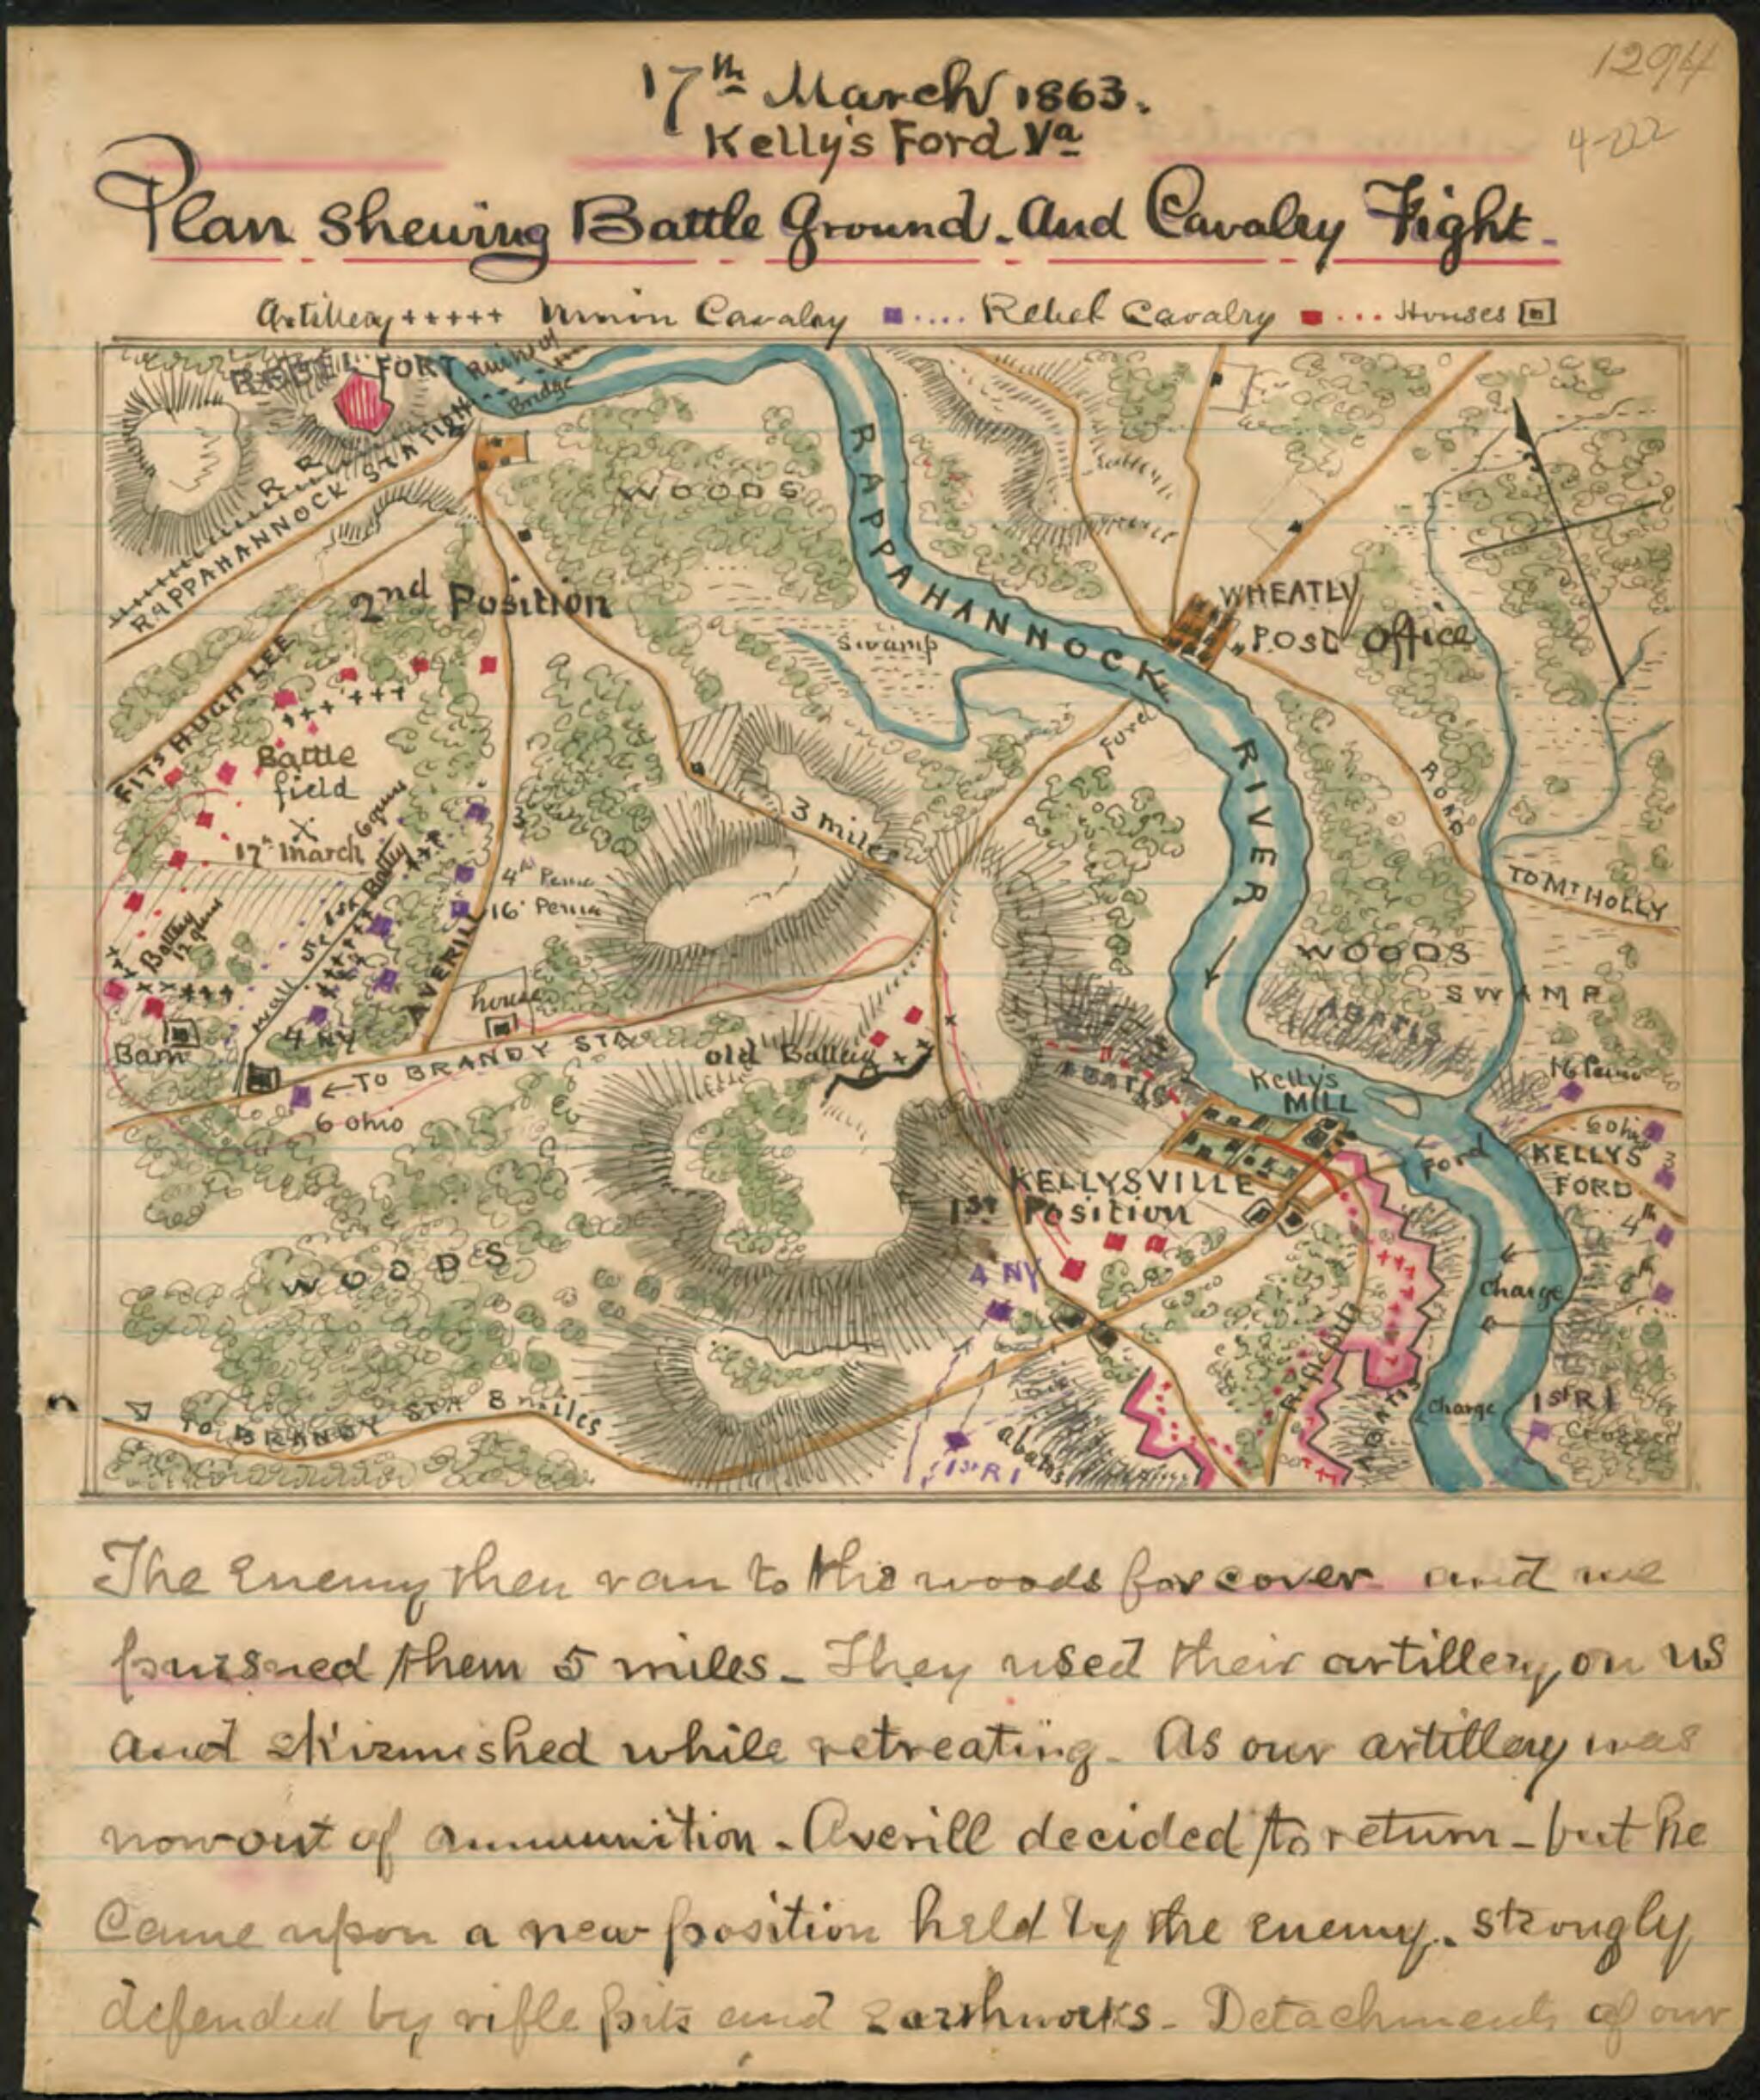 1294
4-222
17th March 1863.
Kelly's Ford Va
Plan Shewing Battle Ground. And Cavalry Fight.
Artillery +++++ Union Cavalry .... Rebel Cavalry ... Houses
REBEL FORT
Ruins of
Bridge
R R
RAPPAHANNOCK STATION
WOODS
RAPPAHANNOCK
RIVER
2nd Position
WHEATLY
POST Office
Swamp
FITS HUGH LEE
Ford
Battle
field
17th March
6 guns
Battey
3 miles
ROAD
3
4th Penna
16' Penna
TO MT HOLLY
Battey
12 guns
AVERILL
WOODS
SWAMP
wall
house
4 NY
ABATIS
Barn
TO BRANDY STA
old Battery
ABATIS
Kelly's
MILL
16 Penna
6 Ohio
6 Ohio
KELLYS
FORD
3
Ford
KELLYSVILLE
1ST Position
4th
4 NY
WOODS
Charge
Rifle Pits
TO BRANDY STA 8 miles
ABATIS
Charge
1st R I
Crossed
abatis
1st R I
The Enemy then ran to the woods for cover and we
pursued them 5 miles - They used their artillery on us
and skirmished while retreating - As our artillery was
now out of ammunition - Averill decided to return - but he
Came upon a new position held by the Enemy. strongly
defended by rifle pits and Earthworks - Detachments of our